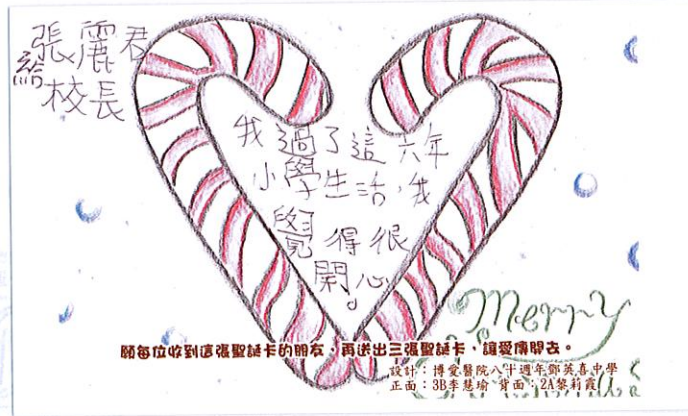 給
張麗君
校長
我過了這六年
小學生活，我
覺得很
開心。
Merry
願每位收到這張聖誕卡的朋友，再送出三張聖誕卡，讓愛傳開去。
設計：博愛醫院八十週年鄧英喜中學
正面：3B李慧瑜 背面：2A黎莉霞